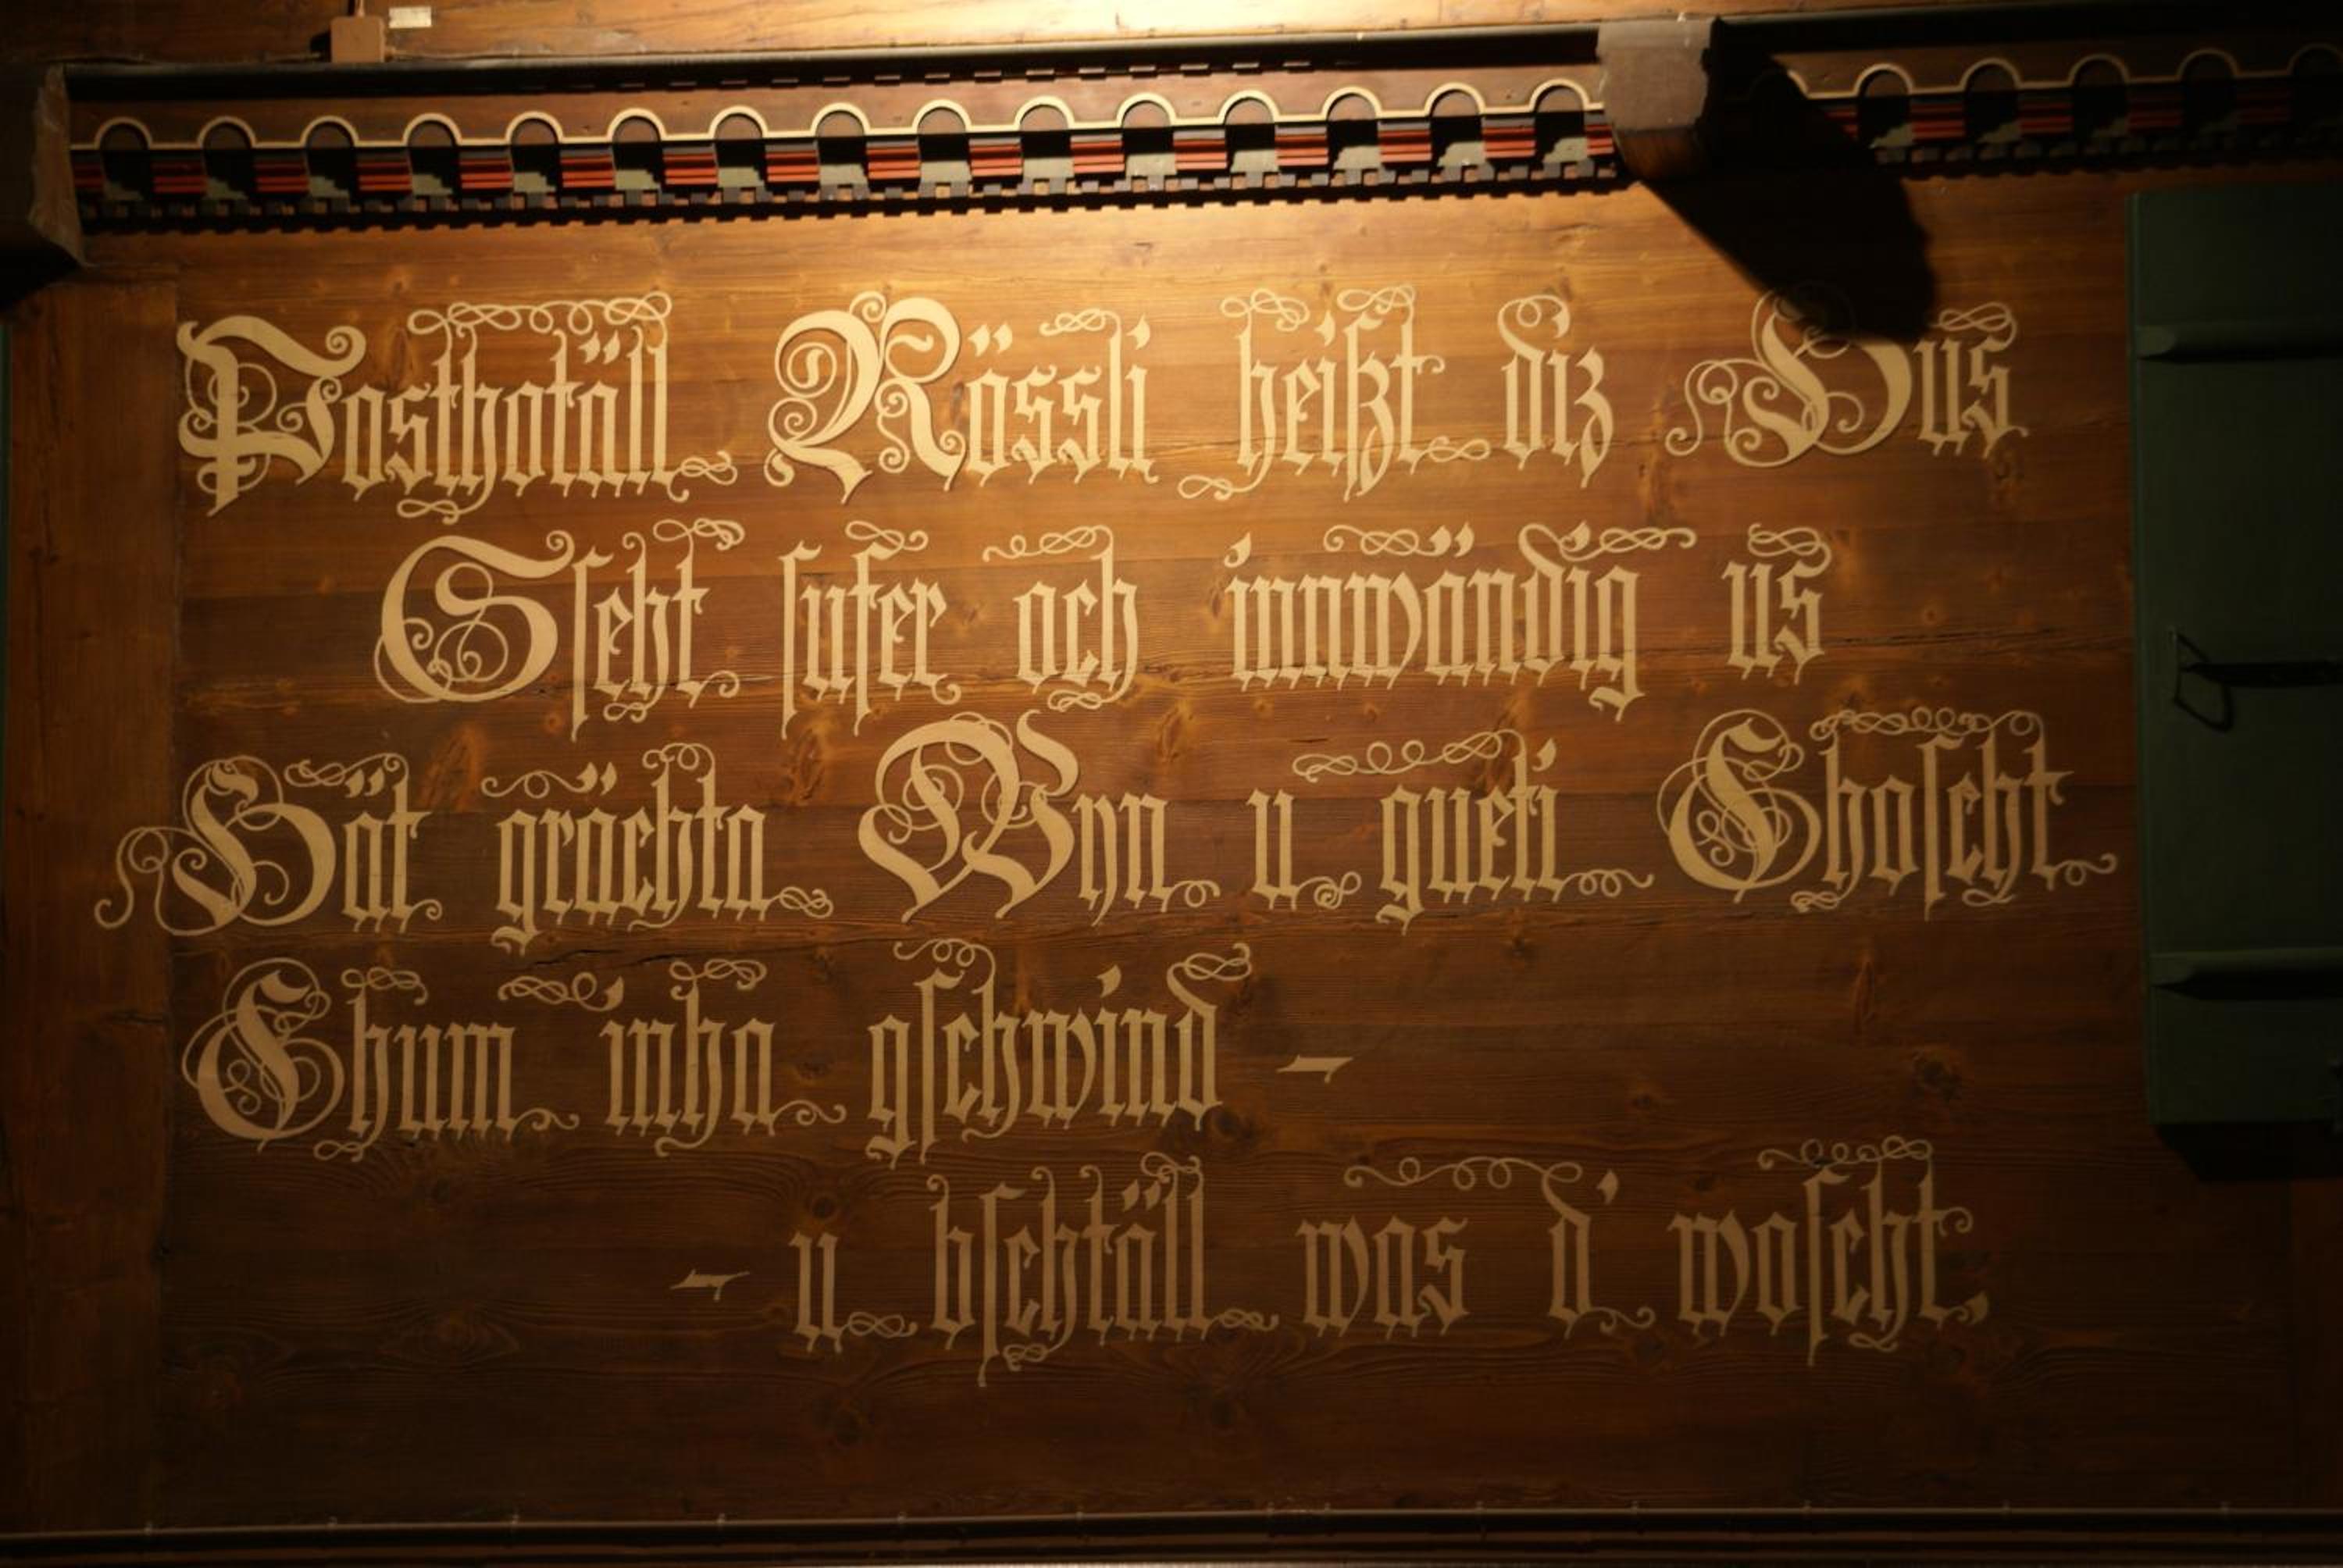 Posthotäll Rössli heißt diz Hus
Sſeht ſufer och innwändig us
Hät grächta Wyn u gueti Choſcht
Chum inha gſchwind -
- u bſchtäll was d' woſcht.